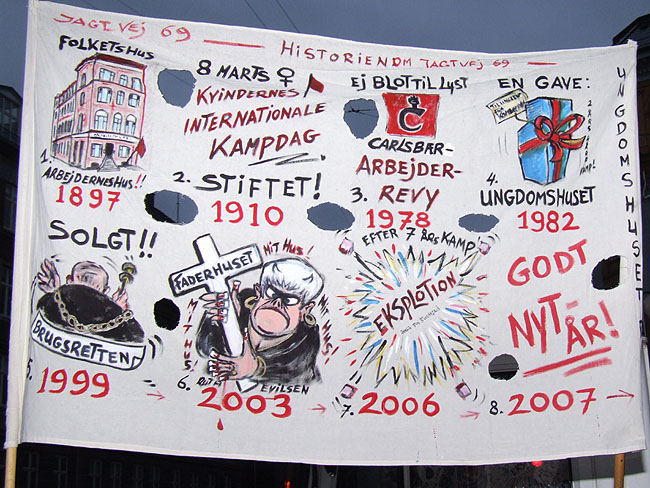 JAGTVEJ 69 — HISTORIEN OM JAGTVEJ 69 —
FOLKETSHUS
1. ARBEJDERNESHUS!!
1897
8 MARTS ♀
KVINDERNES
INTERNATIONALE
KAMPDAG.
2. STIFTET!
1910
EJ BLOT TIL LYST
C
CARLSBÆR-
ARBEJDER-
3. REVY
1978
EN GAVE:
4. UNGDOMSHUSET
1982
UNGDOMSHUSET
SOLGT!!
BRUGSRETTEN
5. 1999
FADERHUSET
MIT HUS!
MIT HUS!
6. RUTH EVILSEN
2003 →
EFTER 7 ÅRS KAMP
EKSPLOTION
7. 2006 →
GODT
NYTÅR!
8. 2007 →